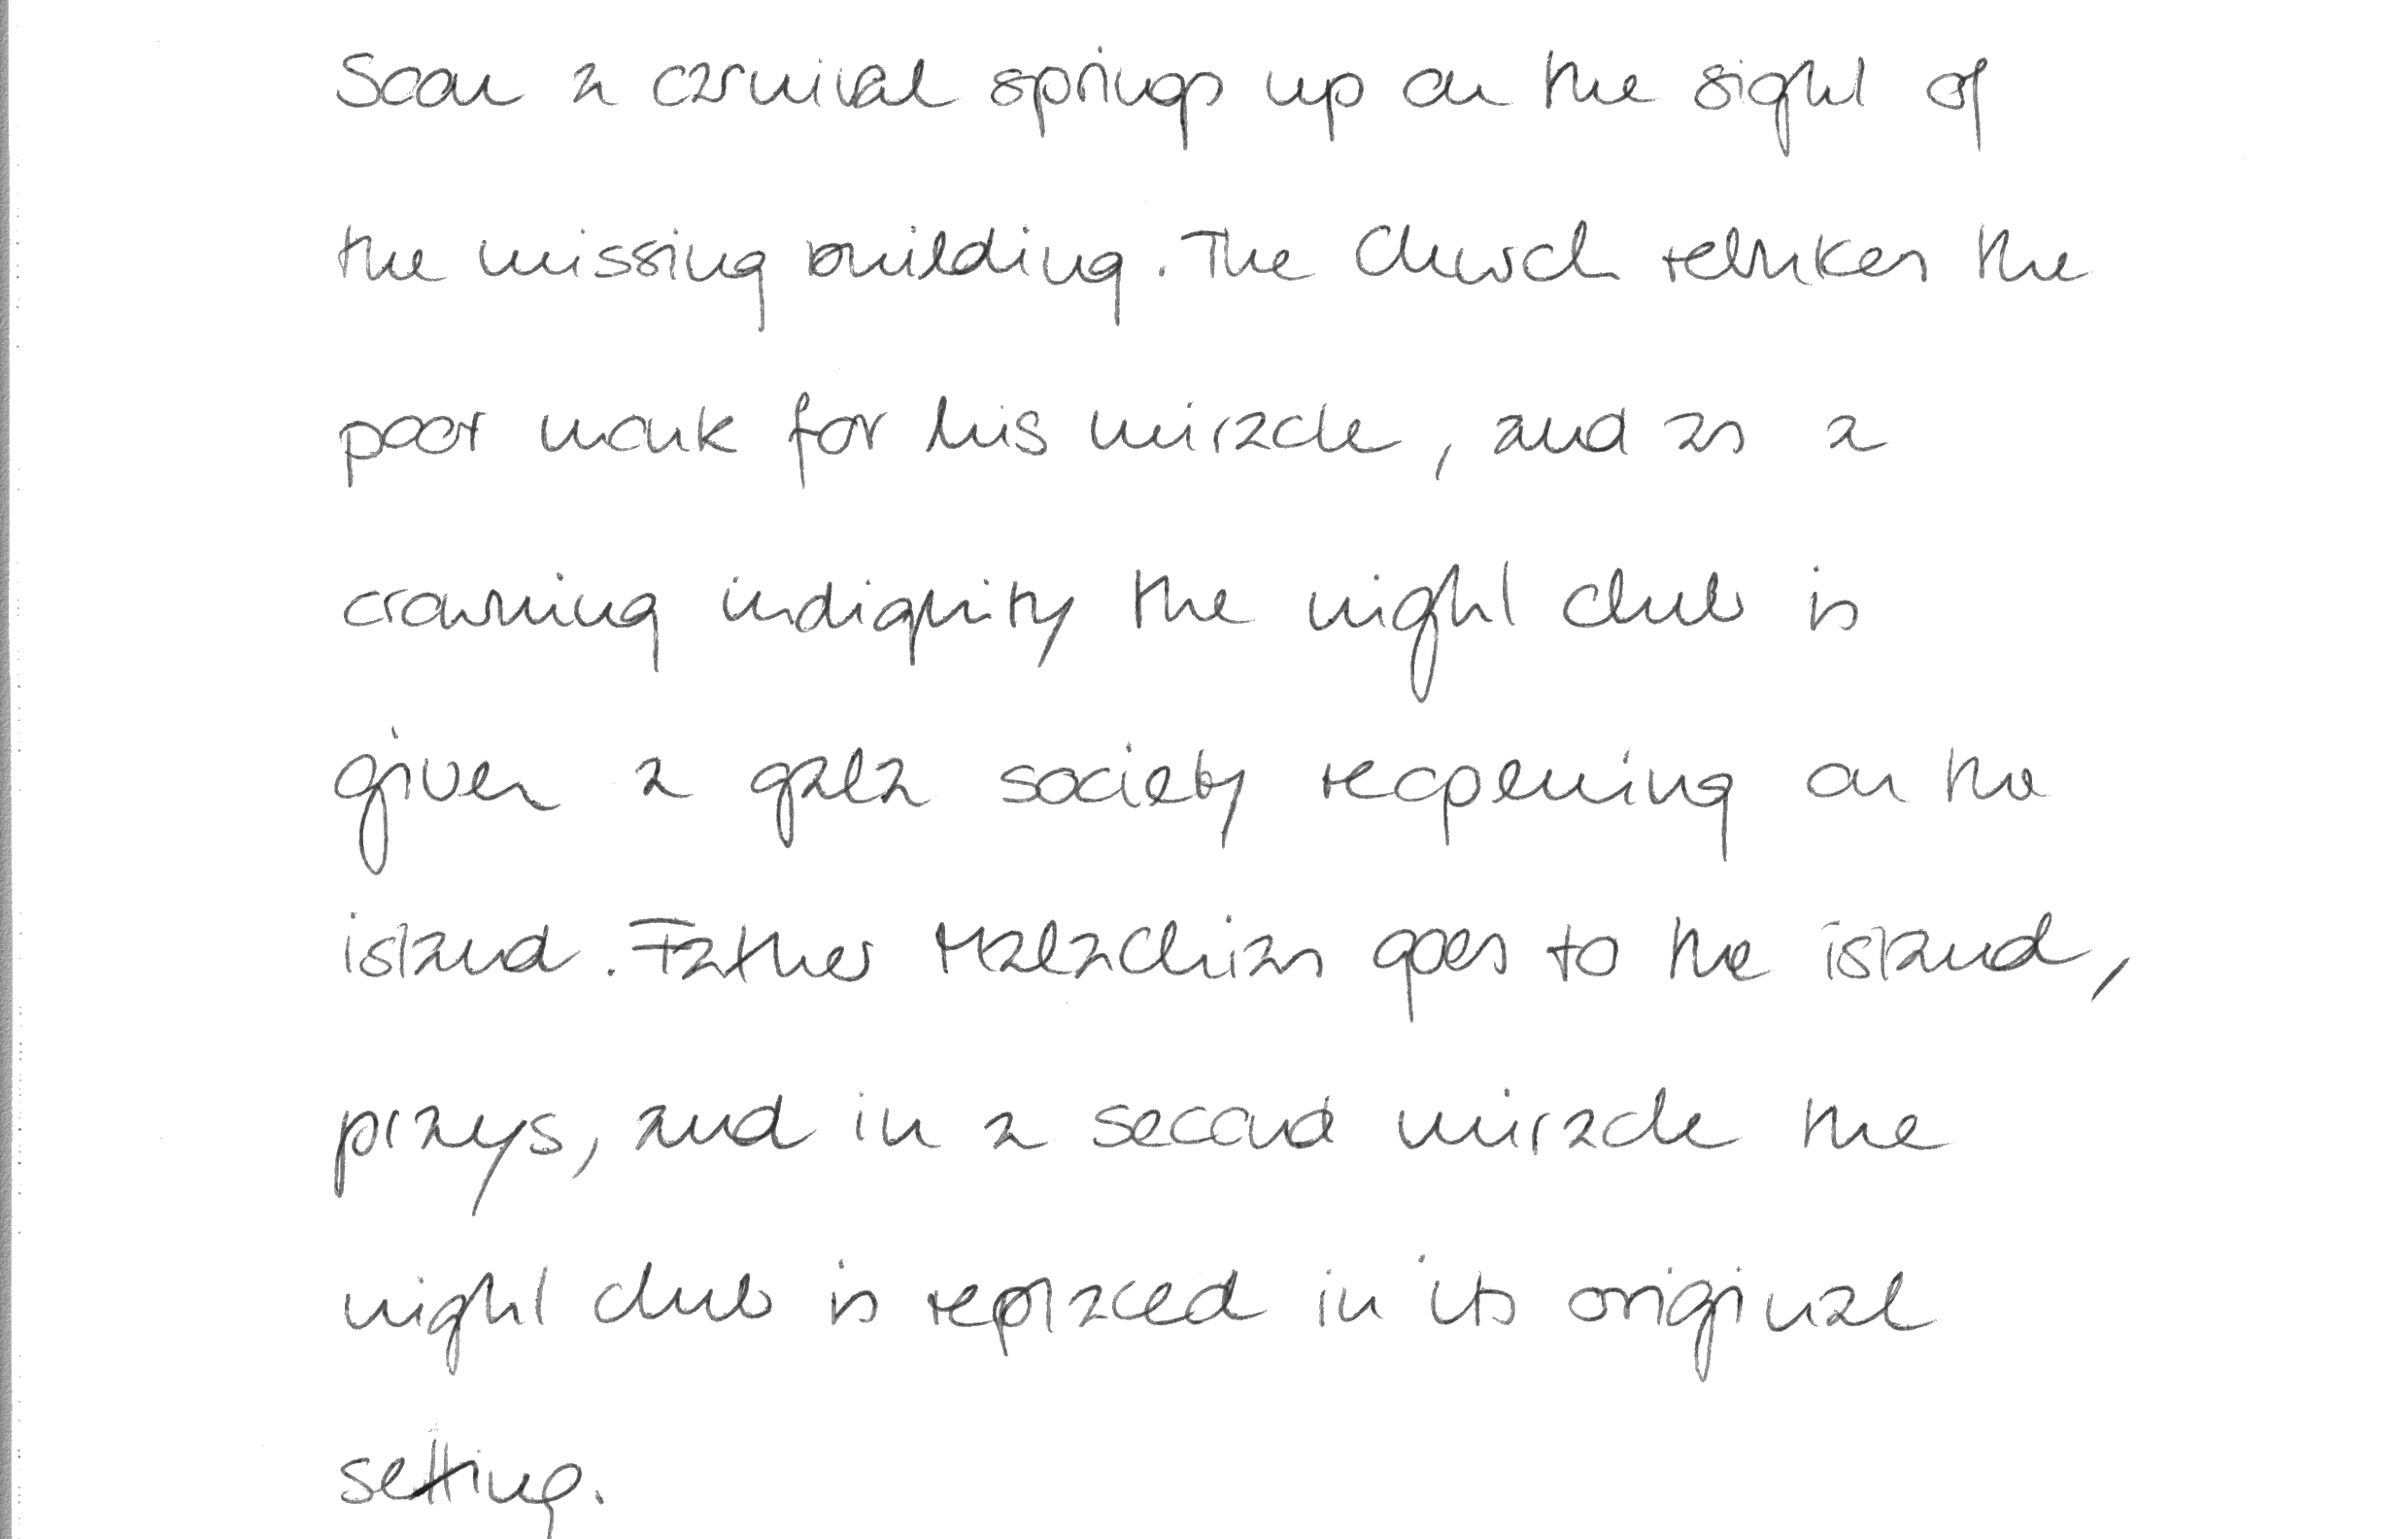 Soon a carnival springs up on the sight of
the missing building. The Church rebukes the
poor monk for his miracle, and as a
crowning indignity the night club is
given a gala society reopening on the
island. Father Malachias goes to the island,
prays, and in a second miracle the
night club is replaced in its original
setting.